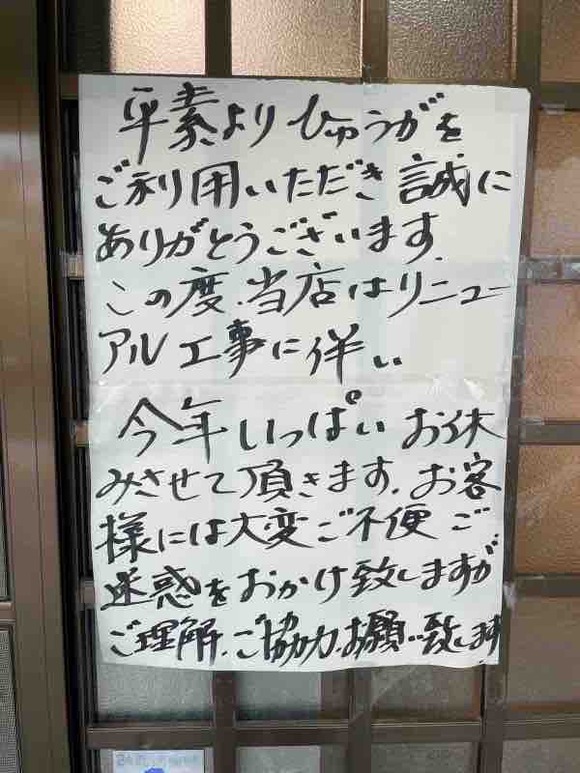 平素よりひゅうがを
ご利用いただき誠に
ありがとうございます.
この度.当店はリニュー
アル工事に伴い
今年いっぱいお休
みさせて頂きます.お客
様には大変ご不便ご
迷惑をおかけ致しますが
ご理解.ご協力.お願い致します